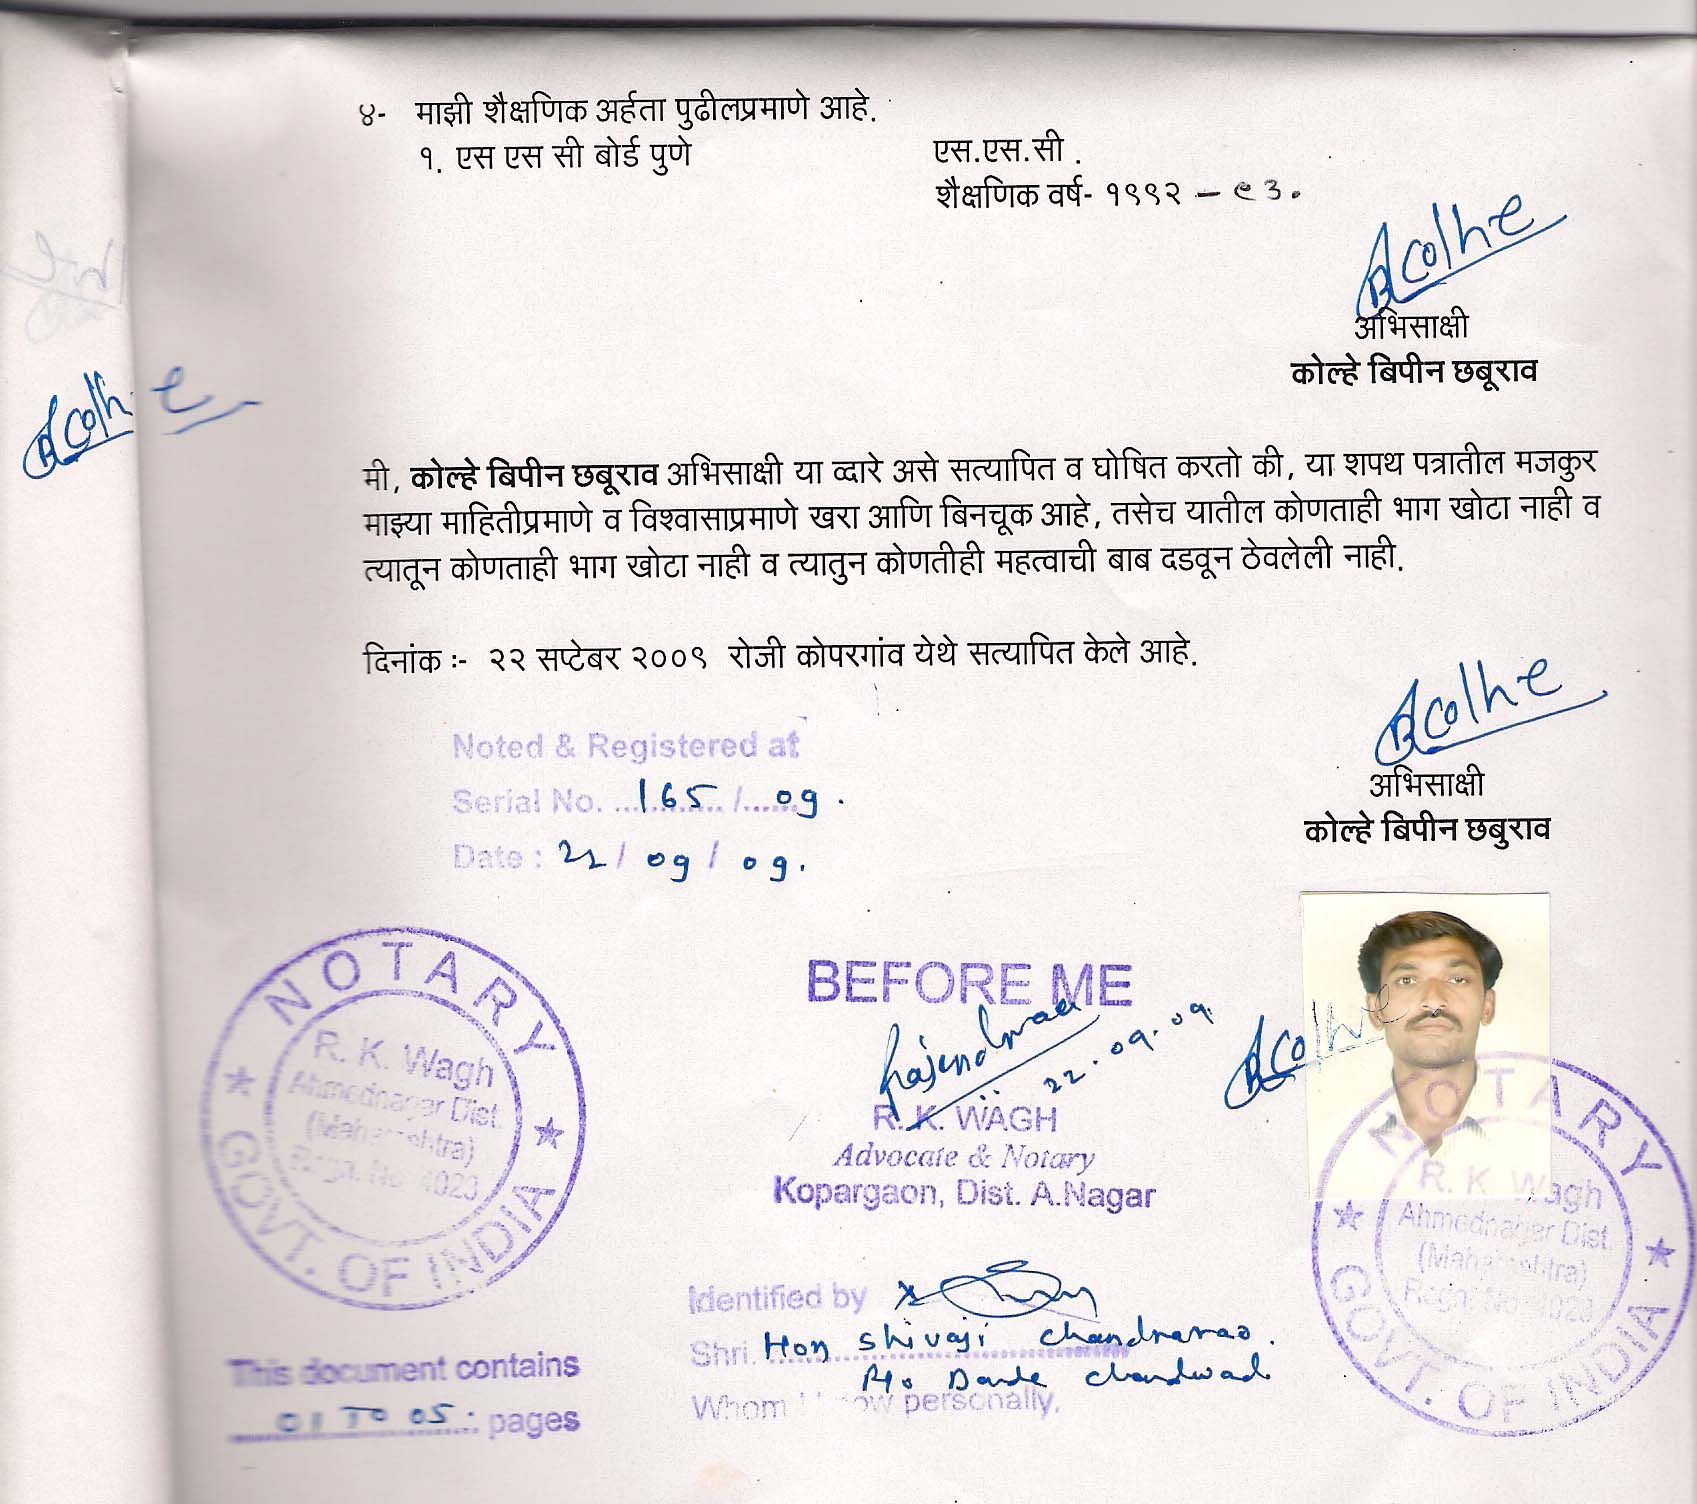 ४- माझी शैक्षणिक अर्हता पुढीलप्रमाणे आहे.
१. एस एस सी बोर्ड पुणे एस.एस.सी .
शैक्षणिक वर्ष- १९९२ – ९३.
BColhe
अभिसाक्षी
कोल्हे बिपीन छबूराव
BColhe
मी, कोल्हे बिपीन छबूराव अभिसाक्षी या व्दारे असे सत्यापित व घोषित करतो की, या शपथ पत्रातील मजकुर
माझ्या माहितीप्रमाणे व विश्वासाप्रमाणे खरा आणि बिनचूक आहे, तसेच यातील कोणताही भाग खोटा नाही व
त्यातून कोणताही भाग खोटा नाही व त्यातुन कोणतीही महत्वाची बाब दडवून ठेवलेली नाही.
दिनांक :- २२ सप्टेबर २००९ रोजी कोपरगांव येथे सत्यापित केले आहे.
BColhe
अभिसाक्षी
कोल्हे बिपीन छबुराव
Noted & Registered at
Serial No. 165 / 09.
Date : 22 / 09 / 09.
NOTARY
R. K. Wagh
Ahmednagar Dist.
(Maharashtra)
Regn. No. 4023
GOVT. OF INDIA
BEFORE ME
22.09.09.
R. K. WAGH
Advocate & Notary
Kopargaon, Dist. A.Nagar
BColhe
NOTARY
R. K. Wagh
Ahmednagar Dist.
(Maharashtra)
Regn. No. 4023
GOVT. OF INDIA
Identified by
Shri. Hon Shivaji Chandrarao.
R/o Chandwad
Whom I know personally.
This document contains
01 TO 05 pages